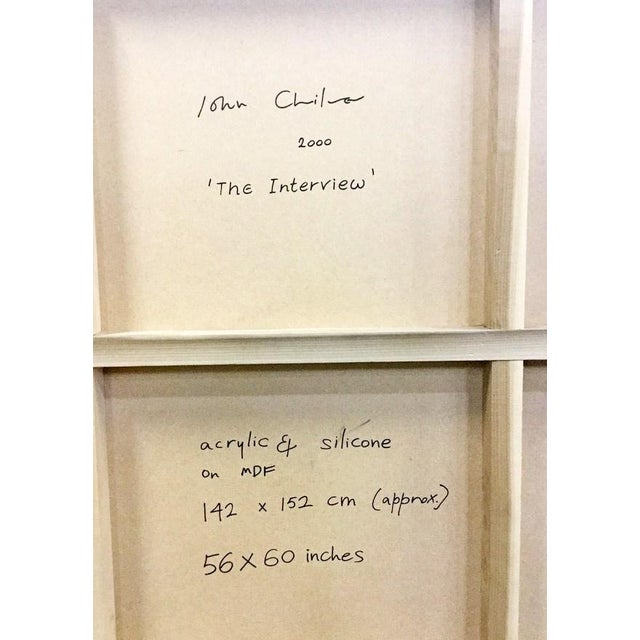 John
2000
'The Interview'
acrylic & silicone
on MDF
142 x 152 cm (approx.)
56 X 60 inches